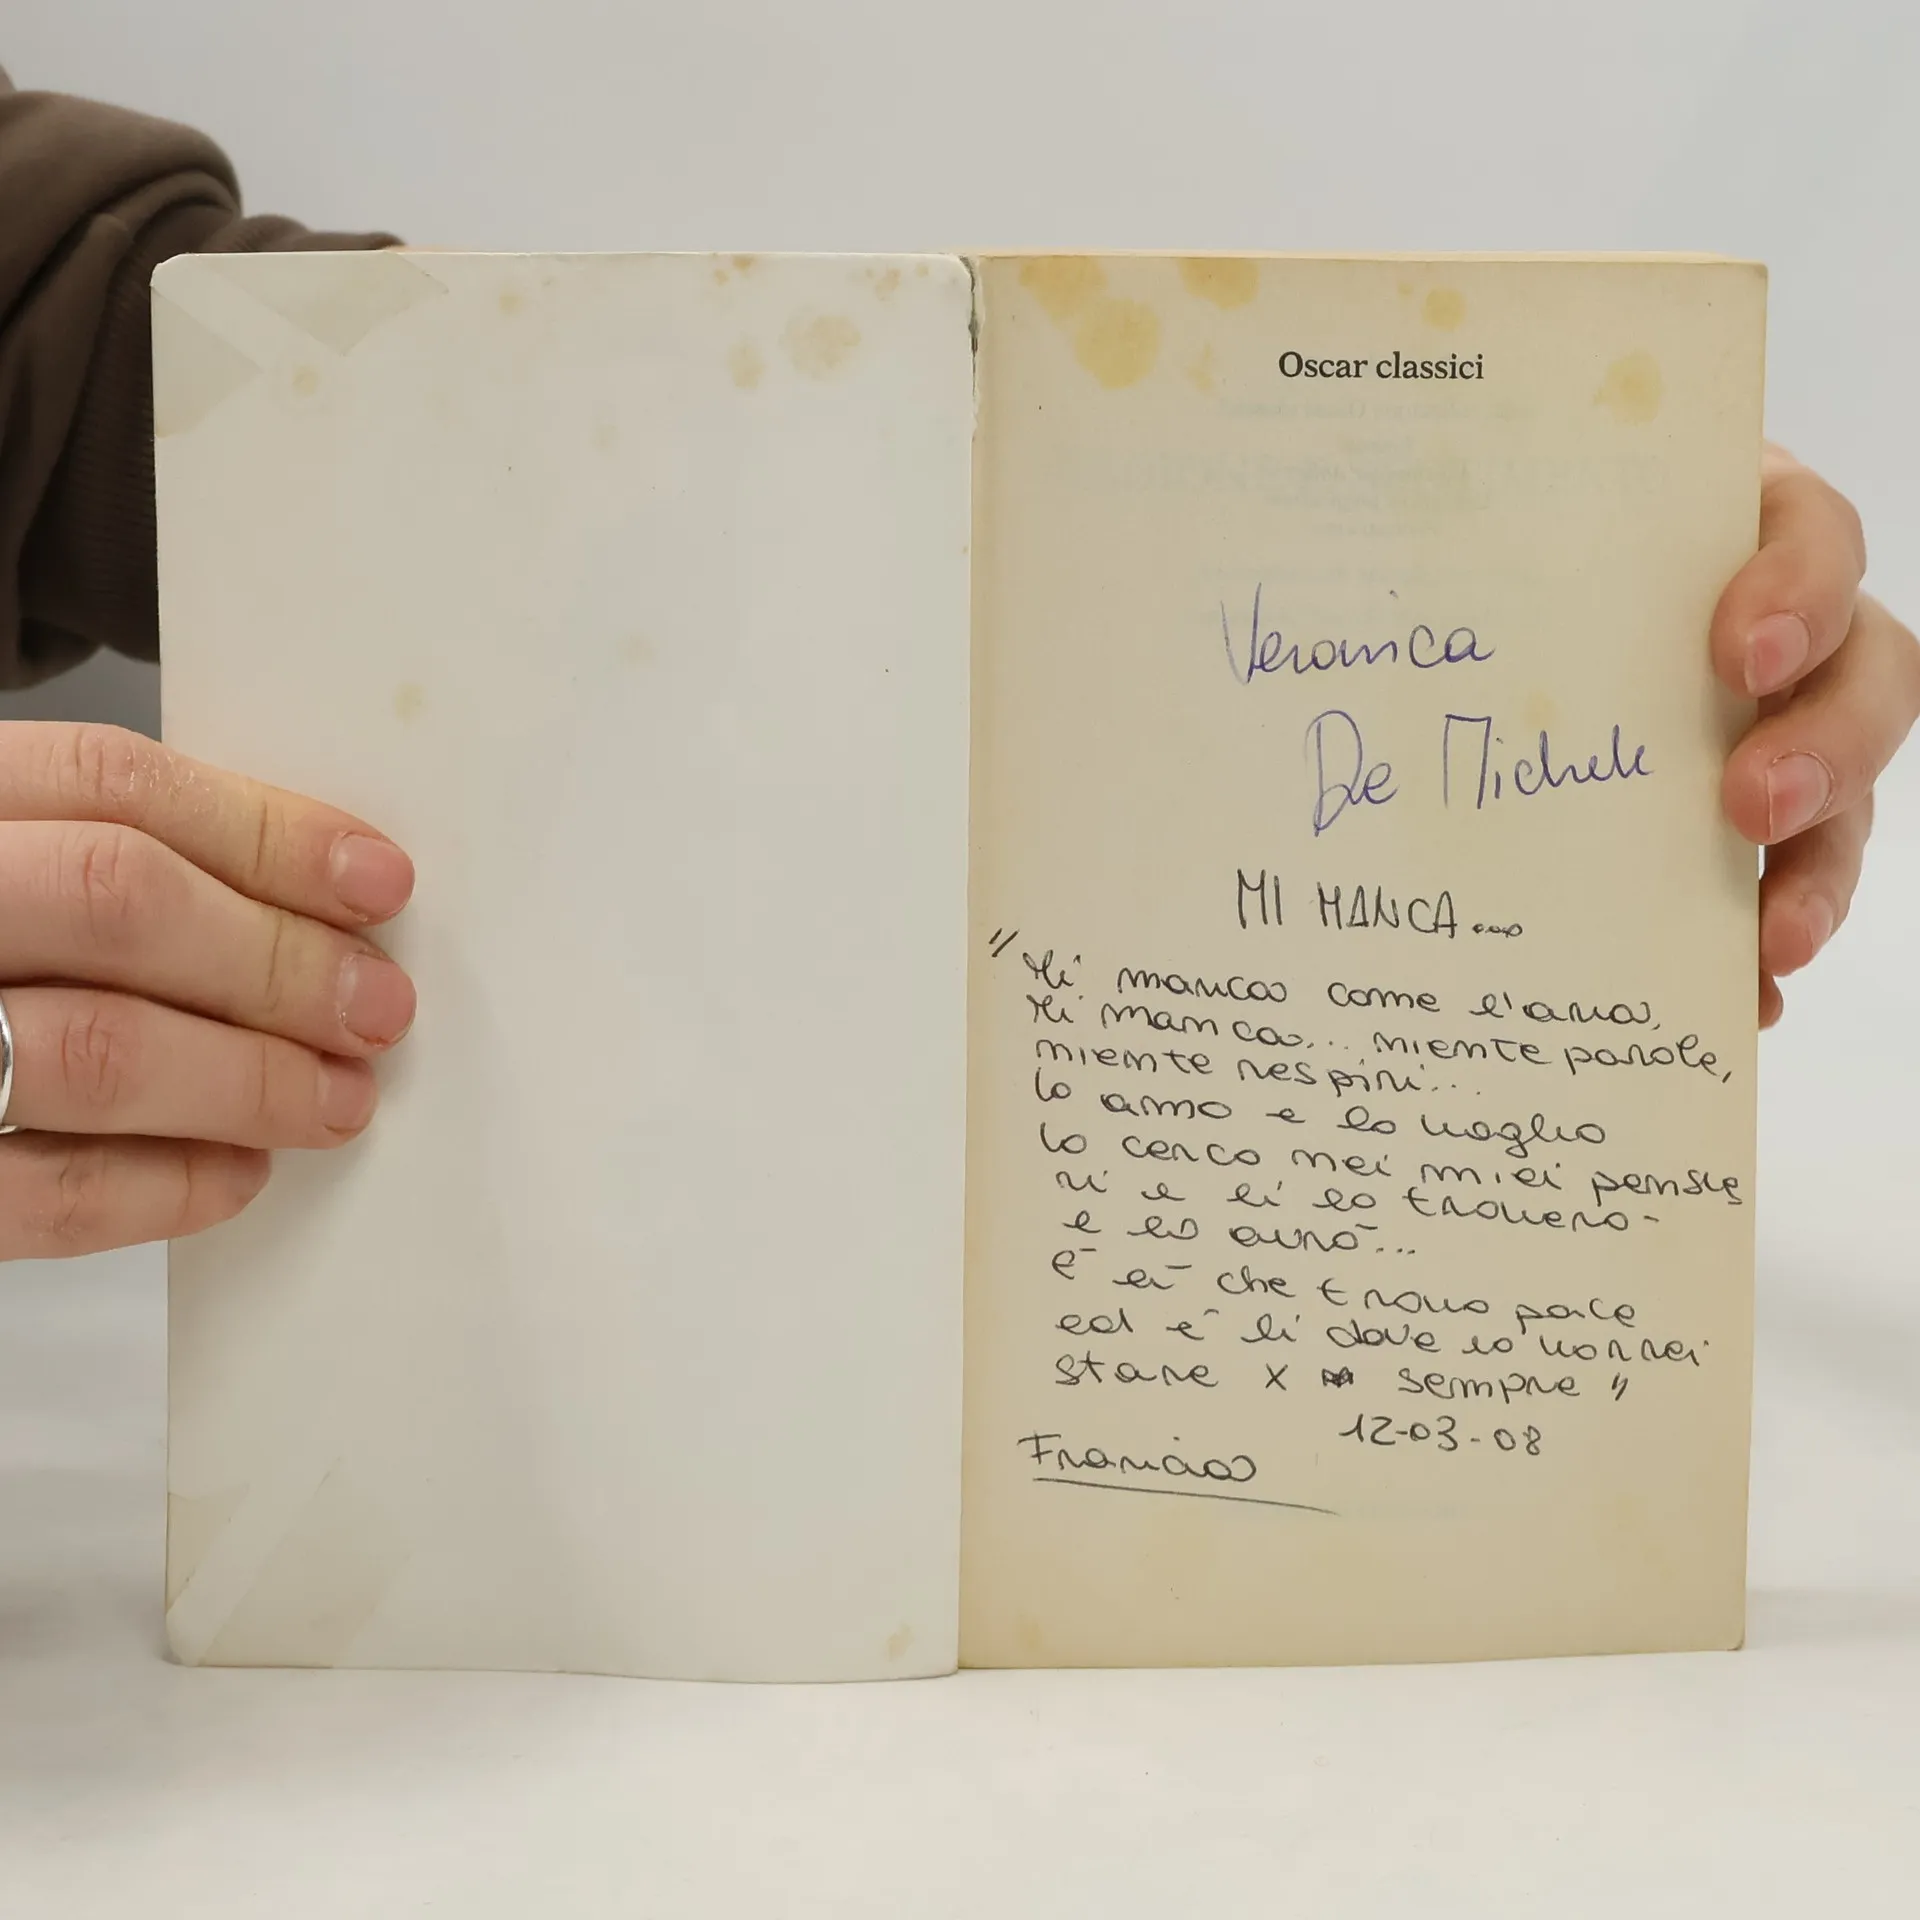 Oscar classici
Veronica
De Michele
MI MANCA....
"Mi manca come l'aria,
Mi manca... niente parole,
niente respiri...
lo amo e lo voglio
lo cerco nei miei pensie
ri e li lo troverò-
e lo avrò...
È lì che trovo pace
ed è lì dove io vorrei
stare x sempre"
12-03-08